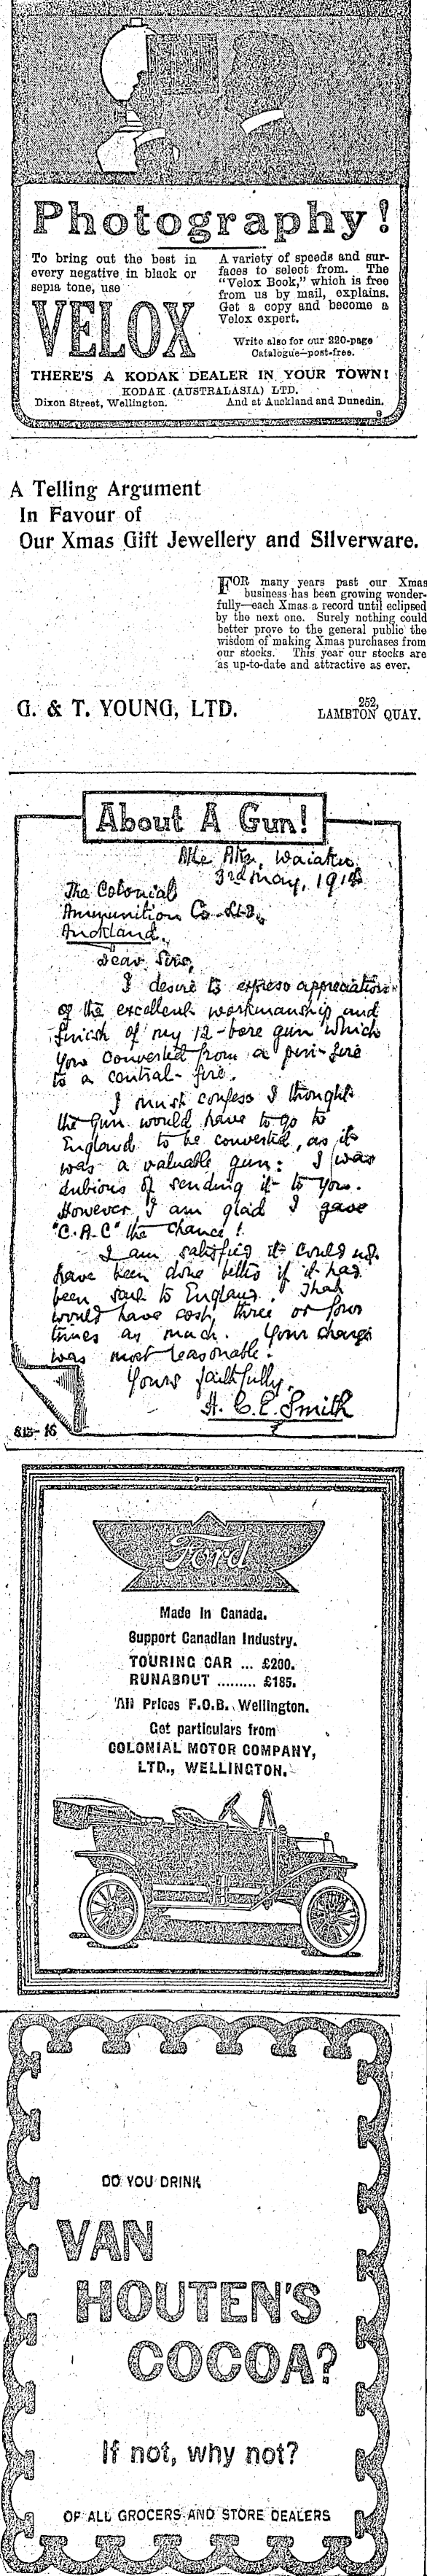 Photography!
To bring out the best in
every negative in black or
sepia tone, use
VELOX
A variety of speeds and sur-
faces to select from. The
"Velox Book," which is free
from us by mail, explains.
Get a copy and become a
Velox expert.
Write also for our 220-page
Catalogue—post-free.
THERE'S A KODAK DEALER IN YOUR TOWN!
KODAK (AUSTRALASIA) LTD.
Dixon Street, Wellington. And at Auckland and Dunedin.
9
A Telling Argument
In Favour of
Our Xmas Gift Jewellery and Silverware.
FOR many years past our Xmas
business has been growing wonder-
fully—each Xmas a record until eclipsed
by the next one. Surely nothing could
better prove to the general public the
wisdom of making Xmas purchases from
our stocks. This year our stocks are
as up-to-date and attractive as ever.
G. & T. YOUNG, LTD.
252,
LAMBTON QUAY.
About A Gun!
Ake Ake, Waiatu
3rd May, 191
The Colonial
Ammunition Co Ltd.,
Auckland.
Dear Sirs,
I desire to express appreciation
of the excellent workmanship and
finish of my 12-bore gun which
you converted from a pin-fire
to a central-fire.
I must confess I thought
the gun would have to go to
England to be converted, as it
was a valuable gun: I was
dubious of sending it to you.
However I am glad I gave
"C.A.C" the chance!
I am satisfied it could not
have been done better if it had
been sent to England. That
would have cost three or four
times as much. Your charge
was most reasonable.
Yours faithfully,
H. C. E. Smith
Ford
Made In Canada.
Support Canadian Industry.
TOURING CAR ... £200.
RUNABOUT ......... £185.
All Prices F.O.B. Wellington.
Get particulars from
COLONIAL MOTOR COMPANY,
LTD., WELLINGTON.
DO YOU DRINK
VAN
HOUTEN'S
COCOA?
If not, why not?
OF ALL GROCERS AND STORE DEALERS